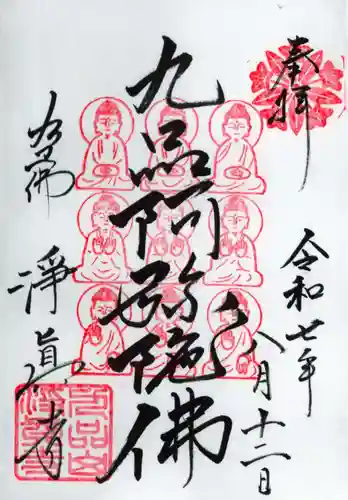 奉拝
令和七年
八月十二日
九品阿弥陀佛
九品佛
淨真寺